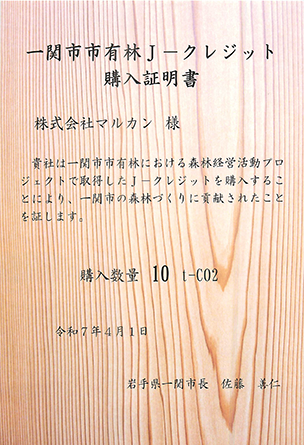 一関市市有林J－クレジット
購入証明書
株式会社マルカン 様
貴社は一関市市有林における森林経営活動プロ
ジェクトで取得したJ－クレジットを購入するこ
とにより、一関市の森林づくりに貢献されたこと
を証します。
購入数量 10 t-CO2
令和7年4月1日
岩手県一関市長 佐藤 善仁